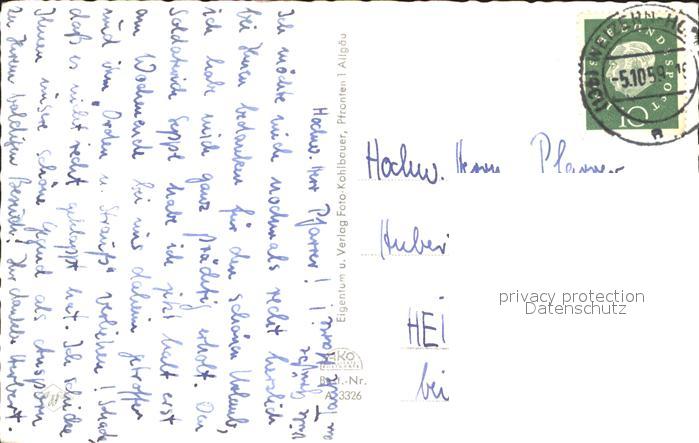 Hochw. Herr Pfarrer!
Ich möchte mich nochmals recht herzlich
bei Ihnen bedanken für den schönen Urlaub,
ich habe mich ganz prächtig erholt. Den
Soldatisch Suppe habe ich jetzt halt erst
am Wochenende bei uns daheim getroffen
und ihm Orden u. Strauß verliehen! Schade,
daß es nicht recht geklappt hat. Ich schicke
Ihnen unsere schöne Gegend als Ansporn
zu Ihrem baldigen Besuch! Ihr dankb. Herbert.
Eigentum u. Verlag Foto-Kohlbauer, Pfronten 1 Allgäu
AKO
Best.-Nr.
A 3326
DEUTSCHE BUNDESPOST
10
-5.10.59
Hochw. Herrn Pfarrer
Huber
HEI
bei
privacy protection
Datenschutz